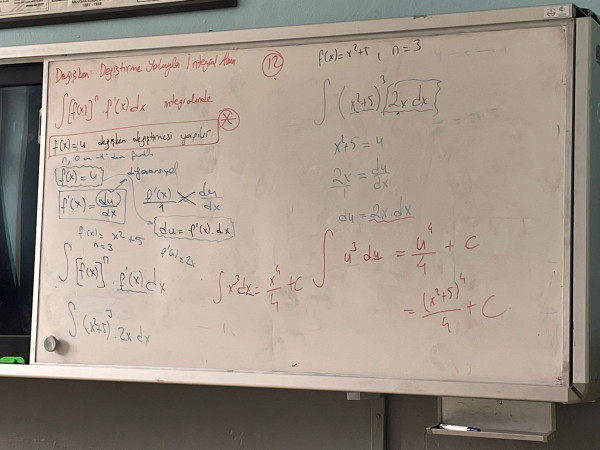 Değişken Değiştirme Yoluyla İntegral Alma
∫[f(x)]ⁿ f'(x)dx integralinde
f(x)=u değişken değiştirmesi yapılır
n, 0 ve -1'den farklı
f(x)=u
diferansiyel
f'(x)=du/dx
f'(x)/1 = du/dx
du=f'(x).dx
f(x)=x²+5
n=3
f'(x)=2x
∫[f(x)]ⁿ f'(x)dx
∫(x²+5)³ 2x dx
∫x³dx=x⁴/4+C
12
f(x)=x²+5, n=3
∫(x²+5)³ 2x dx
x²+5=u
2x/1=du/dx
du=2x.dx
∫u³du=u⁴/4+C
=(x²+5)⁴/4+C